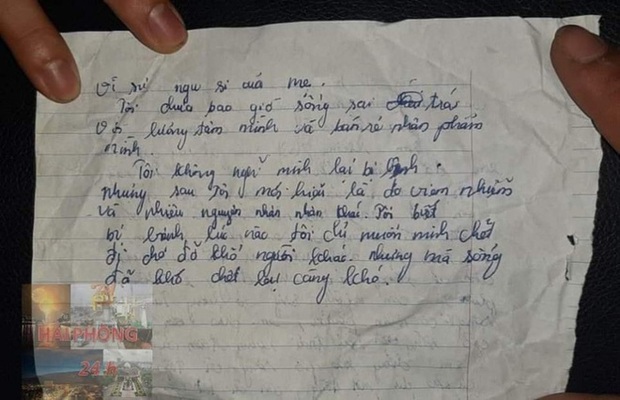 Vì sự ngu si của mẹ.
Tôi chưa bao giờ sống sai trái
với lương tâm mình và bán rẻ nhân phẩm
mình.
Tôi không nghĩ mình lại bị bệnh.
nhưng sau tôi mới hiểu là do viêm nhiễm
và nhiều nguyên nhân nhân khác. Tôi biết
bị bệnh lúc nào tôi chỉ muốn mình chết
đi cho đỡ khổ người khác. nhưng mà sống
đã khó chết lại càng khó.
HẢI PHÒNG
24h